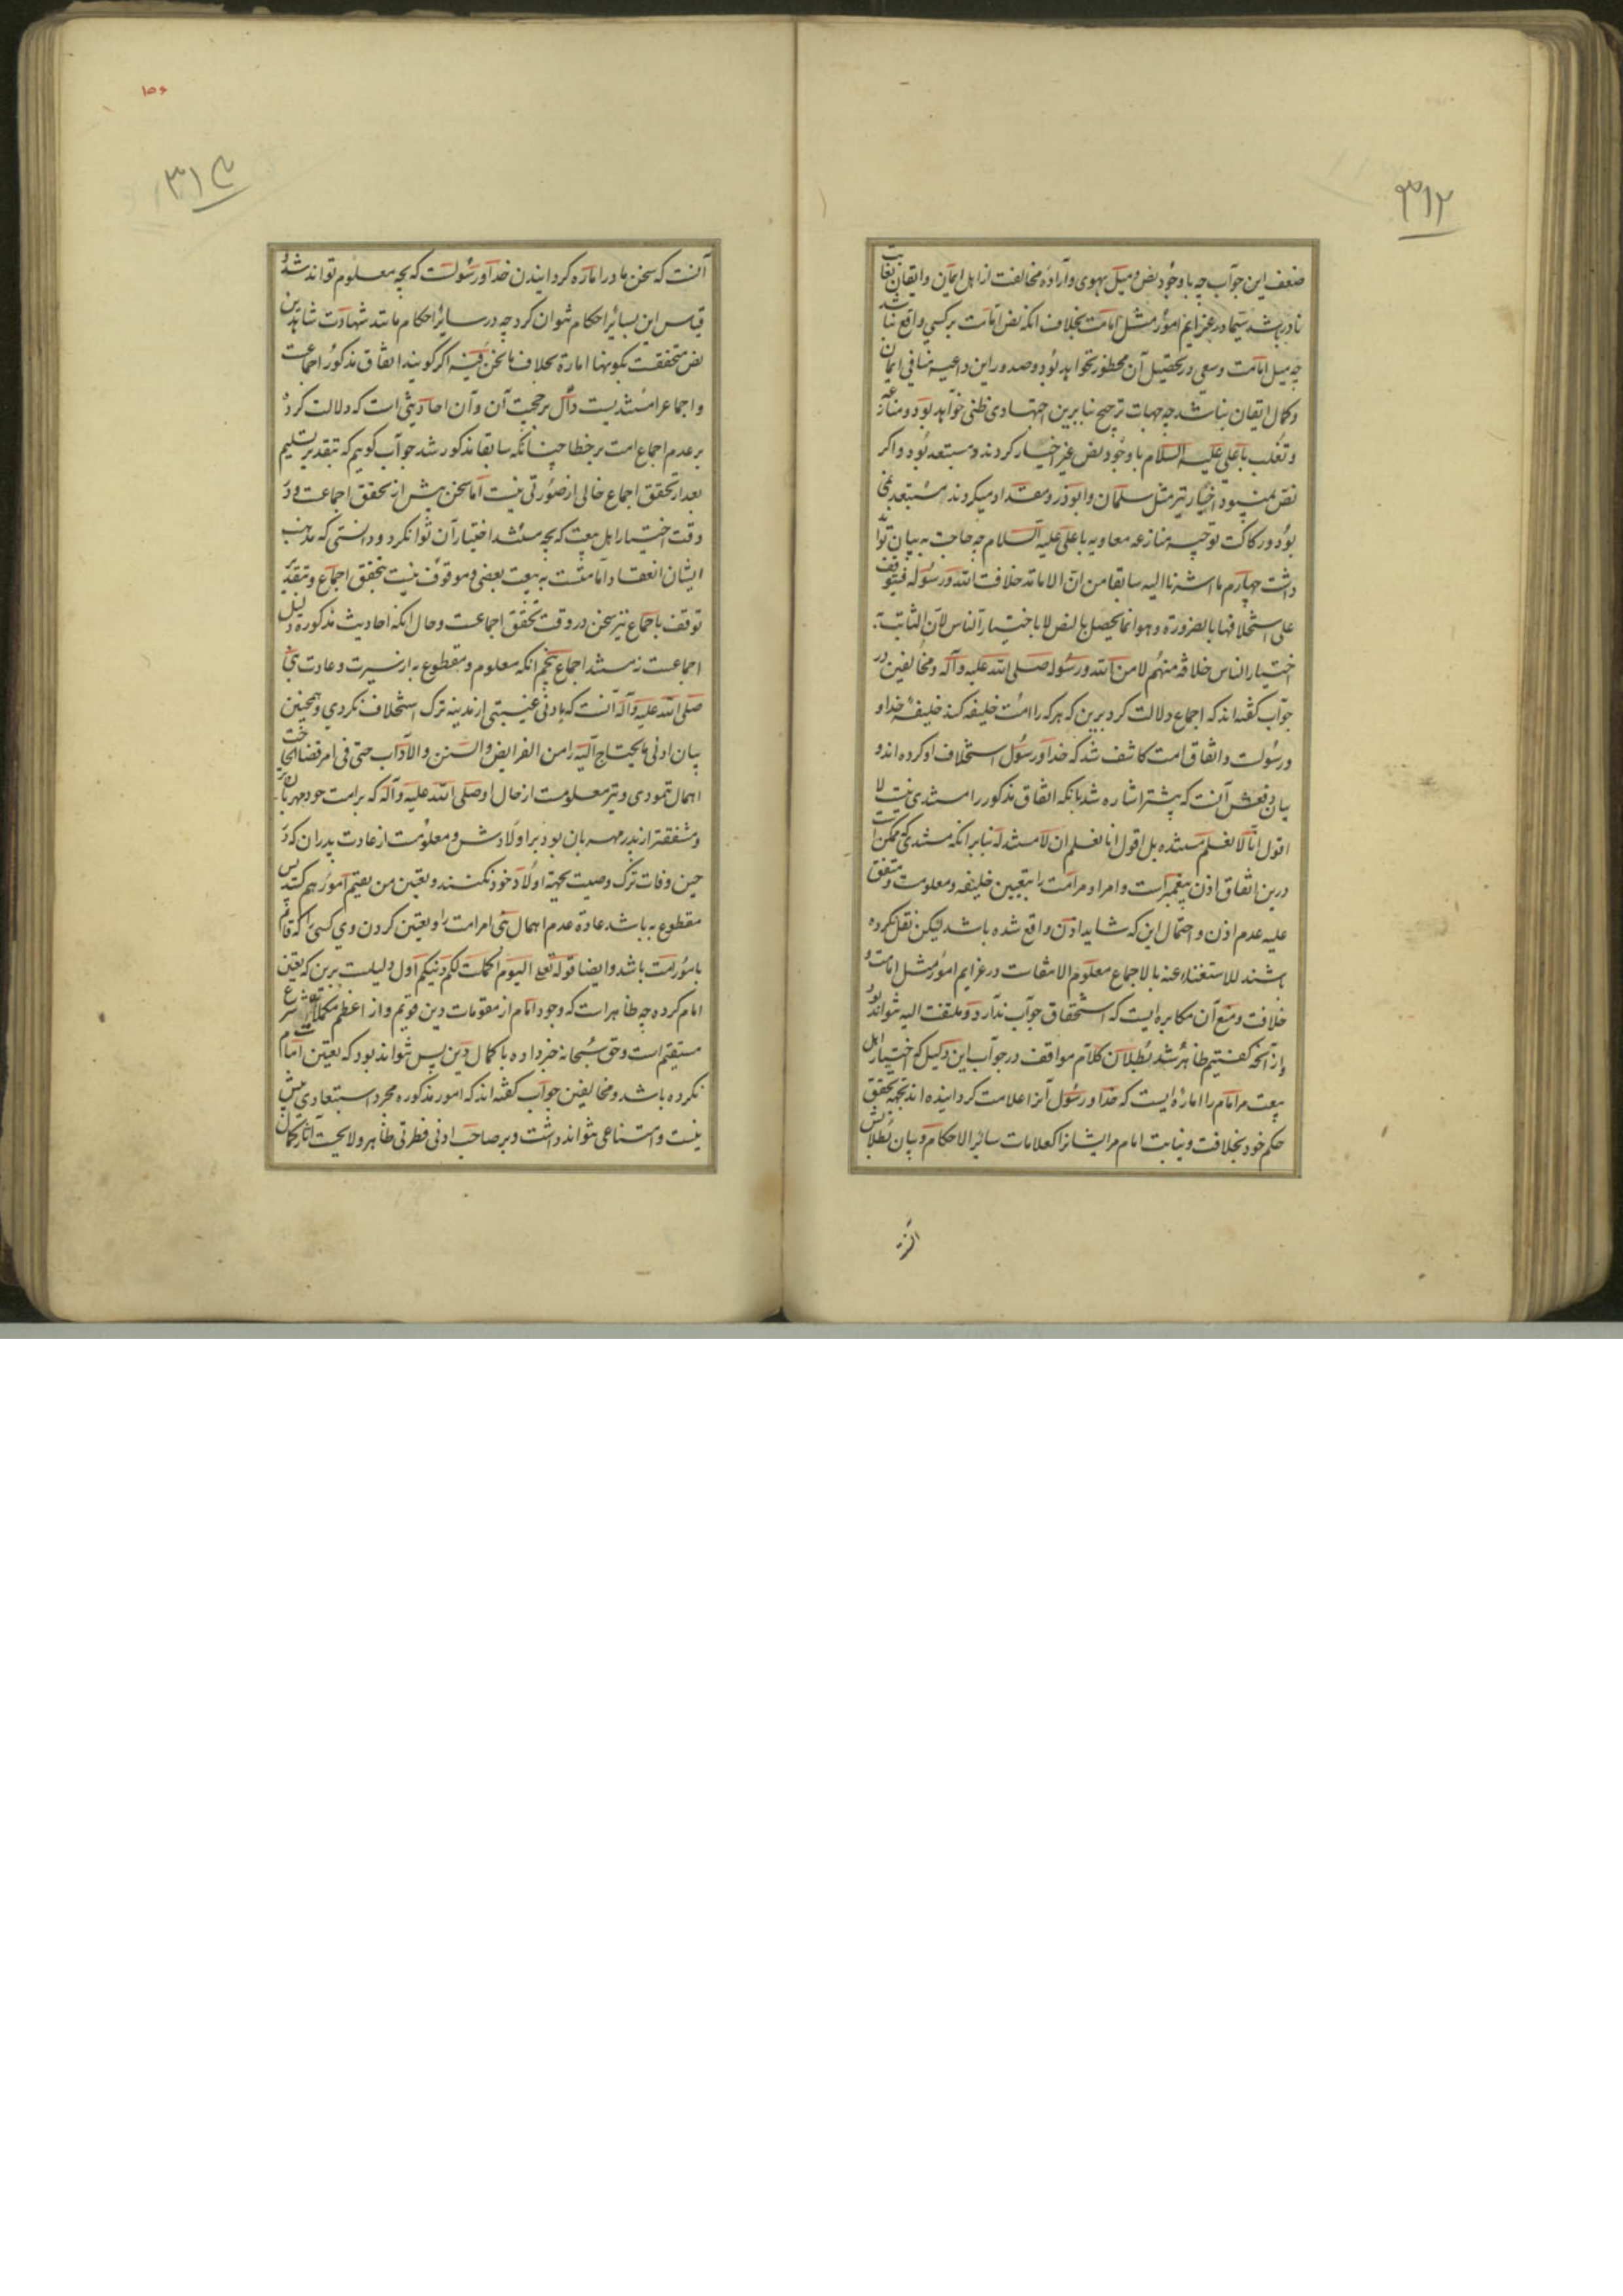 ۳۱۲
ضعف این جواب چه با وجود نص و میل بهوی و اراده مخالفت از اهل ایمان و ایقان بغایت
نادر باشد سیما در عزایم امور مثل امامت بخلاف آنکه نص امامت بر کسی واقع نباشد
چه میل امامت و سعی در تحصیل آن محظور نخواهد بود و صدور این داعیه منافی ایمان
و کمال ایقان نباشد چه جهات ترجیح بنابرین اجتهادی ظنی خواهد بود و منازعه
و تغلب با علی علیه السلام با وجود نص غیر اخیار کردند و مستبعد نبود و اگر
نص نمیبود اخیار نیز مثل سلمان و ابوذر و مقداد میکردند مستبعد نمی
بود و رکاکت توجیه منازعه معاویه با علی علیه السلام چه حاجت به بیان تواند
داشت چهارم ما اشرنا الیه سابقا من ان الامامة خلافت الله و رسوله فیتوقف
علی استخلافها بالضرورة و هو انما یحصل بالنص لا باختیار الناس لان الثابت
اختیار الناس خلافة منهم لا من الله و رسوله صلی الله علیه و آله و مخالفین در
جواب گفته‌اند که اجماع دلالت کرد برین که هر که را امت خلیفه کند خلیفهٔ خدا و
و رسولست و اتفاق امت کاشف شد که خدا و رسول استخلاف او کرده‌اند و
بیان دفعش آنست که پیشتر اشاره شد بانکه اتفاق مذکور را مستندی نیست لا
اقول انا لا نعلم مستنده بل اقول انا نعلم ان لا مستند له بنابر آنکه مستندی که ممکن است
درین اتفاق اذن پیغمبر است و امر او مر امت را بتعیین خلیفه و معلومست و متفق
علیه عدم اذن و احتمال این که شاید اذن واقع شده باشد لیکن نقل نکرده
باشند للاستغناء عنه بالاجماع معلوم الانتفاست در عزایم امور مثل امامت و
خلافت و منع آن مکابره ایست که استحقاق جواب ندارد و ملتفت الیه نتواند بود
و از آنچه گفتیم ظاهر شد بطلان کلام مواقف در جواب این دلیل که اختیار اهل
بیعت مر امام را اماره ایست که خدا و رسول آنرا علامت گردانیده‌اند بجهة تحقق
حکم خود بخلافت و نیابت امام مر ایشانرا کعلامات سائر الاحکام و بیان بطلانش
آنست
۱۵۶
۳۱۳
آنست که سخن ما در اماره گردانیدن خدا و رسولست که بچه معلوم تواند شد و
قیاس این بسائر احکام نتوان کرد چه در سائر احکام مانند شهادت شاهدین
نص متحققست بکونها امارة بخلاف ما نحن فیه اگر گویند اتفاق مذکور اجماعست
و اجماع را مستندیست دال بر حجیت آن و آن احادیثی است که دلالت کرده
بر عدم اجماع امت بر خطا چنانکه سابقا مذکور شد جواب گویم که بتقدیر تسلیم
بعد از تحقق اجماع خالی از صورتی نیست اما سخن پیش از تحقق اجماعست و در
وقت اختیار اهل بیعت که بچه مستند اختیار آن توانکرد و دانستی که مذهب
ایشان انعقاد امامتست به بیعت بعضی و موقوف نیست بتحقق اجماع و بتقدیر
توقف باجماع نیز سخن در وقت تحقق اجماعست و حال آنکه احادیث مذکوره دلیل
اجماعست نه مستند اجماع پنجم آنکه معلوم و مقطوع به از سیرت و عادت نبی
صلی الله علیه و آله آنست که بادنی غیبتی از مدینه ترک استخلاف نکردی و همچنین
بیان ادنی ما یحتاج الیه را من الفرایض و السنن و الآداب حتی فی امر قضاء الحاجت
اهمال ننمودی و نیز معلومست از حال او صلی الله علیه و آله که بر امت خود مهربان‌تر
و مشفقتر از پدر مهربان بود بر اولادش و معلومست از عادت پدران که در
حین وفات ترک وصیت بجهة اولاد خود نکنند و تعیین من یقیم امورهم کنند پس
مقطوع به باشد عادة عدم اهمال نبی امر امت را و تعیین کردن وی کسی را که قائم
بامور امت باشد و ایضا قوله تعالی الیوم اکملت لکم دینکم اول دلیلیست برین که تعیین
امام کرده چه ظاهر است که وجود امام از مقومات دین قویم و از اعظم مکملات شرع
مستقیم است و حق سبحانه خبر داده باکمال دین پس نتواند بود که تعیین امام
نکرده باشد و مخالفین جواب گفته‌اند که امور مذکوره مجرد استبعادی بیش
نیست و امتناعی نتواند داشت و بر صاحب ادنی فطرتی ظاهر و لایحست آثار کمال